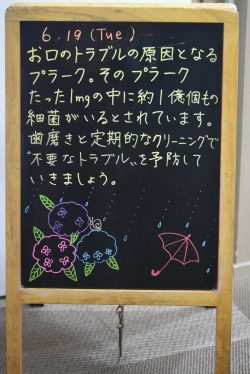 6.19 (Tue)
お口のトラブルの原因となる
プラーク。そのプラーク
たった1mgの中に約1億個もの
細菌がいるとされています。
歯磨きと定期的なクリーニングで
"不要なトラブル"を予防して
いきましょう。